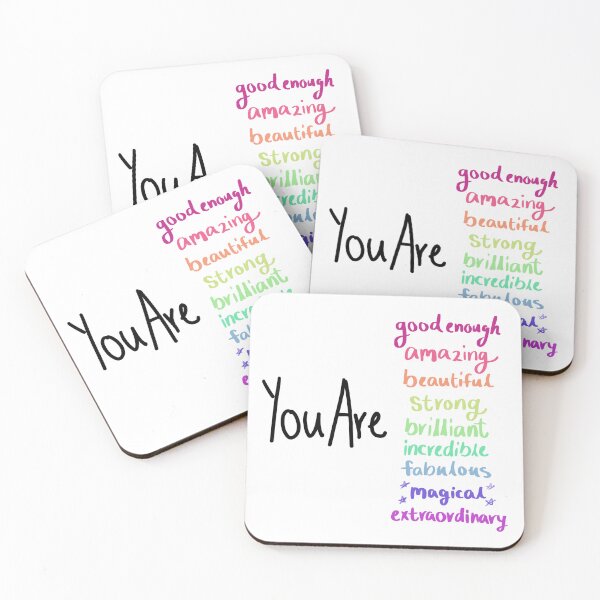 You
good enough
amazing
beautiful
strong
brilliant
incredible
fabulous
You Are
good enough
amazing
beautiful
strong
brilliant
incredible
fabulous
You Are
good enough
amazing
beautiful
strong
brilliant
You Are
good enough
amazing
beautiful
strong
brilliant
incredible
fabulous
magical
extraordinary